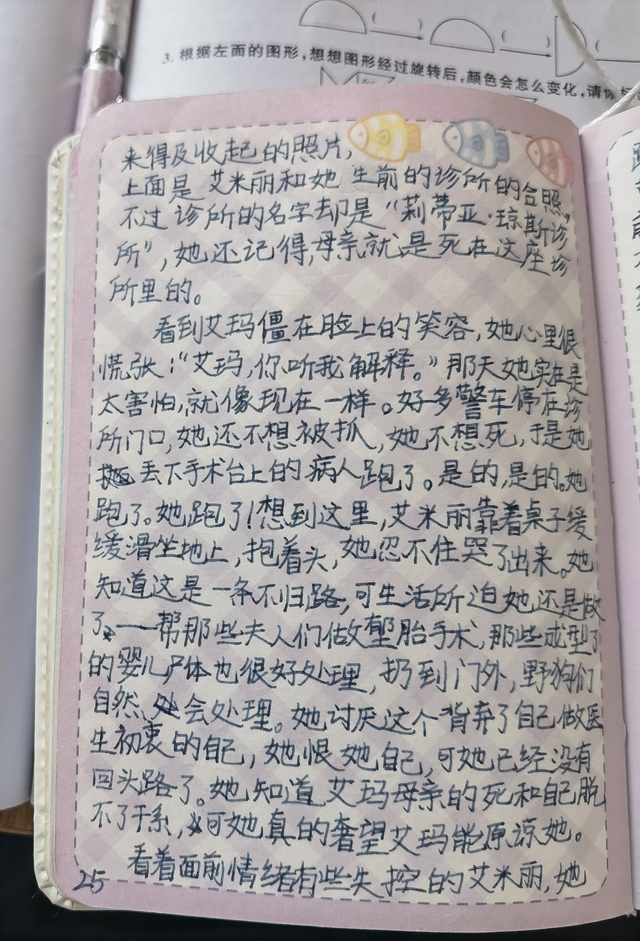 3. 根据左面的图形,想想图形经过旋转后,颜色会怎么变化,请你
来得及收起的照片,
上面是艾米丽和她生前的诊所的合照,
不过诊所的名字却是“莉蒂亚·琼斯诊
所”,她还记得,母亲就是死在这座诊
所里的。
看到艾玛僵在脸上的笑容,她心里很
慌张:“艾玛,你听我解释。”那天她实在是
太害怕,就像现在一样。好多警车停在诊
所门口,她还不想被抓,她不想死,于是她
丢下手术台上的病人跑了。是的,是的。她
跑了。她跑了!想到这里,艾米丽靠着桌子缓
缓滑坐地上,抱着头,她忍不住哭了出来。她
知道这是一条不归路,可生活所迫她还是做
了——帮那些夫人们做堕胎手术,那些成型了
的婴儿尸体也很好处理,扔到门外,野狗们
自然会处理。她讨厌这个背弃了自己做医
生初衷的自己,她恨她自己,可她已经没有
回头路了。她知道艾玛母亲的死和自己脱
不了干系,可她真的奢望艾玛能原谅她。
看着面前情绪有些失控的艾米丽,她
25